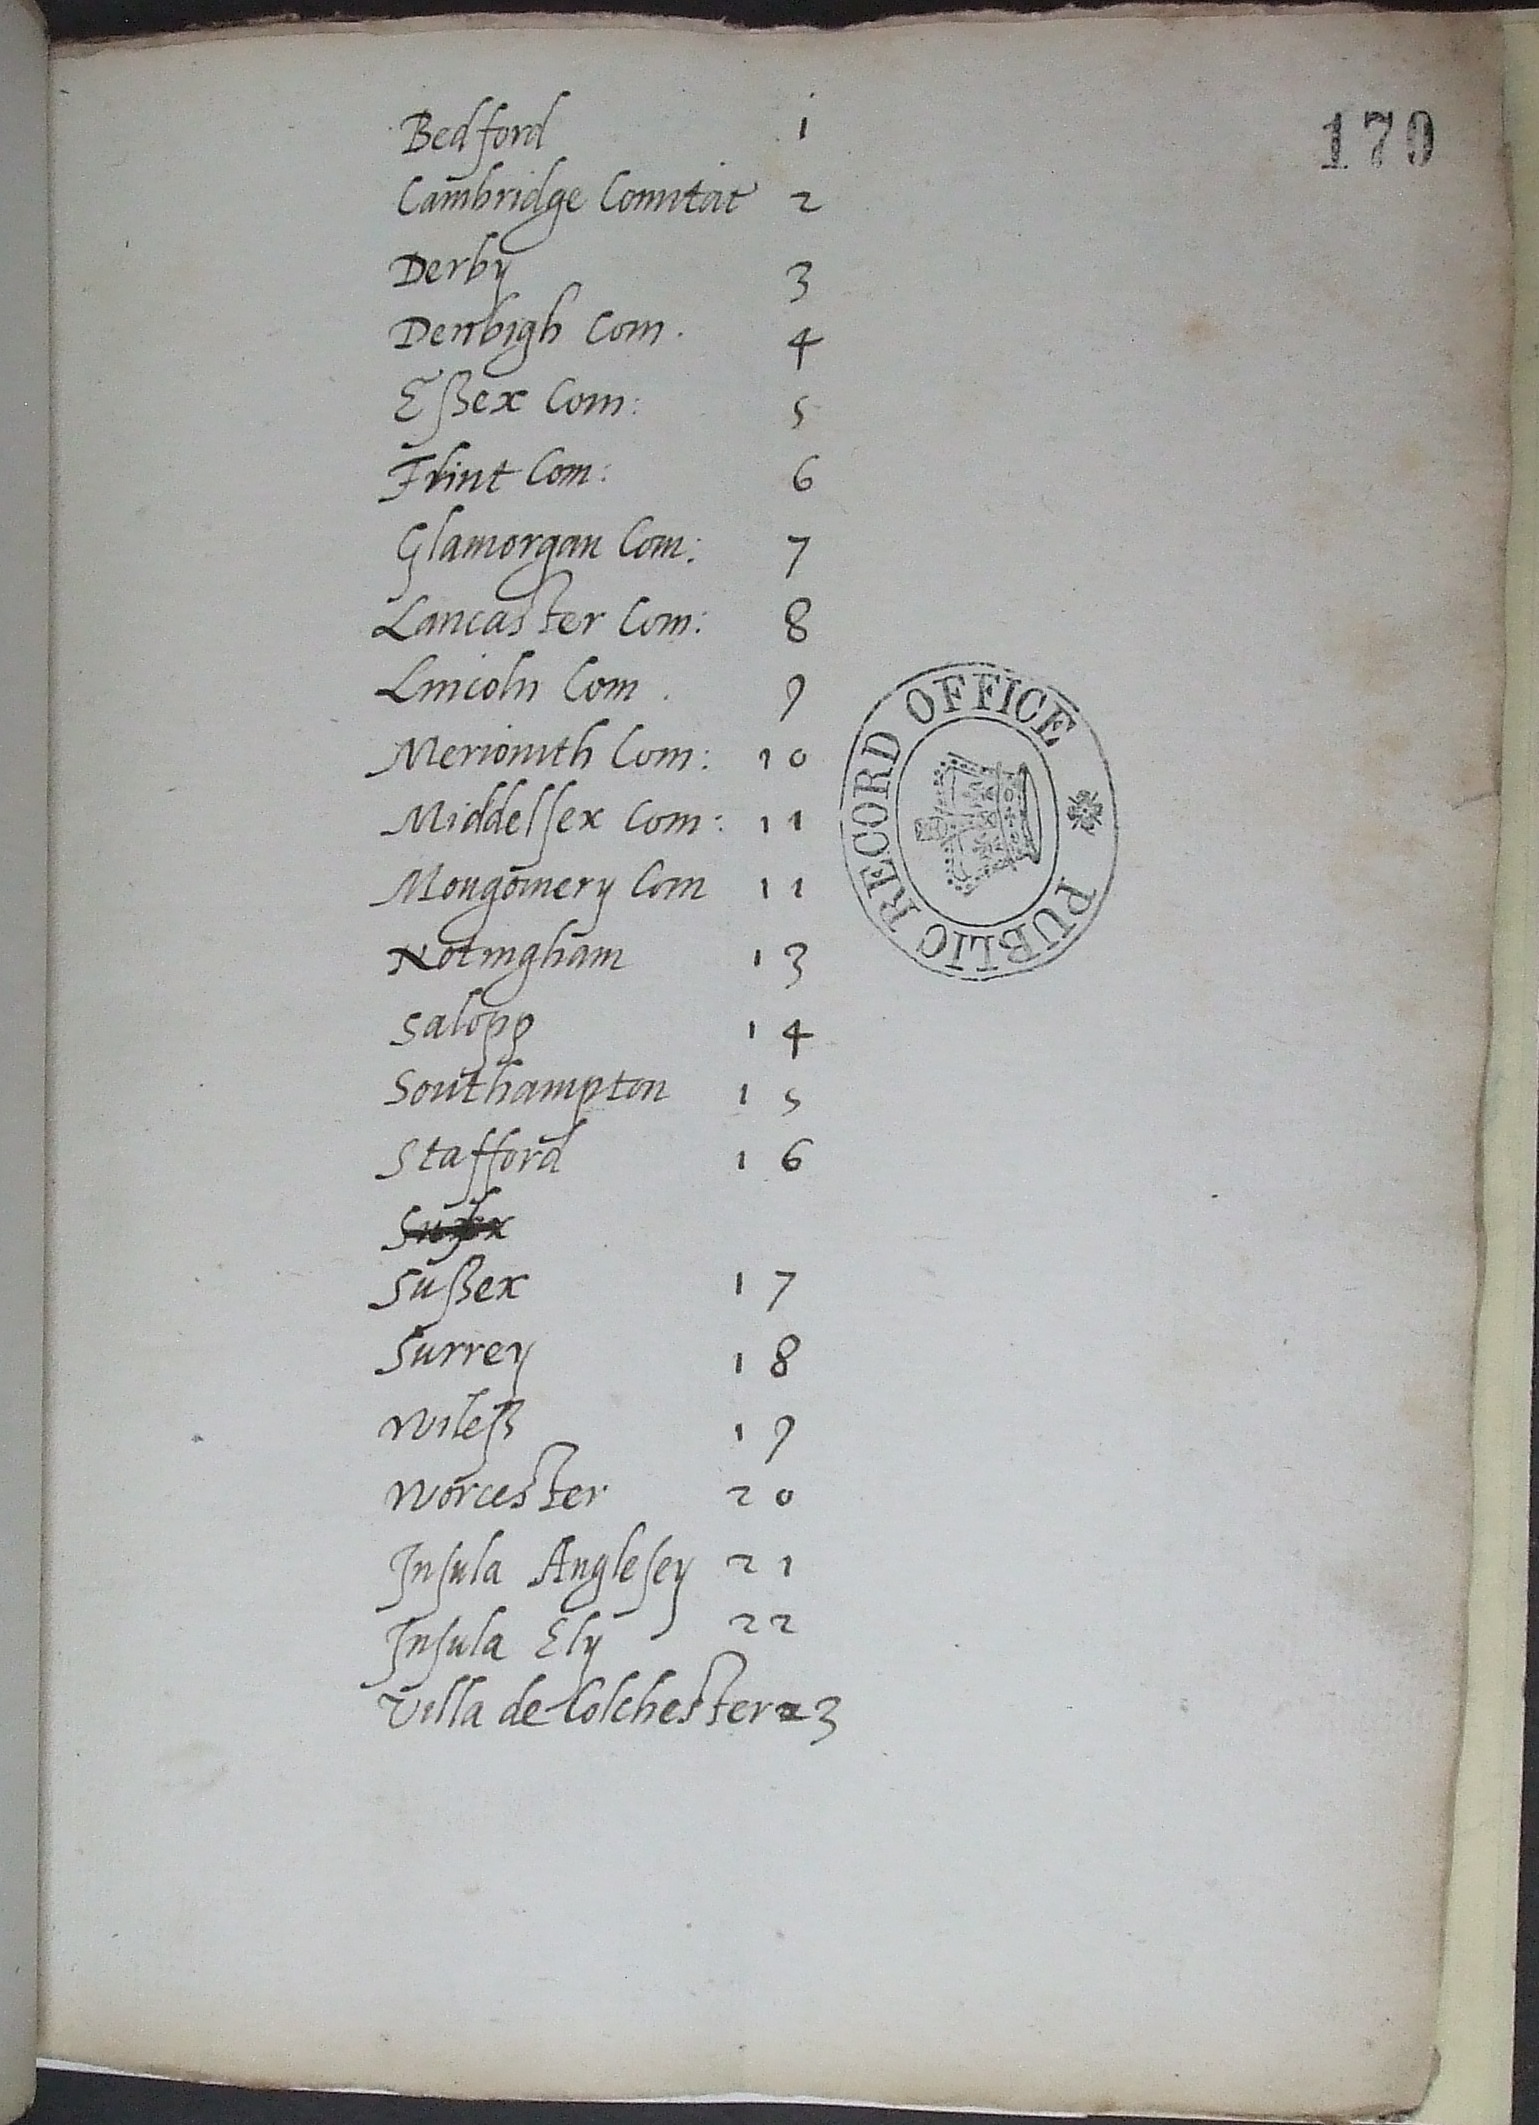 170
Bedford 1
Cambridge Comitat 2
Derby 3
Denbigh Com. 4
Eßex Com: 5
Flint Com: 6
Glamorgan Com: 7
Lancaster Com: 8
Lincoln Com. 9
Merionith Com: 10
Middelſex Com: 11
Mongomery Com 11
Notingham 13
Salopp 14
Southampton 15
Stafford 16
Sußex 17
Surrey 18
Wilteß 19
Worcester 20
Inſula Angleſey 21
Inſula Ely 22
Villa de Colchester 23
PUBLIC RECORD OFFICE